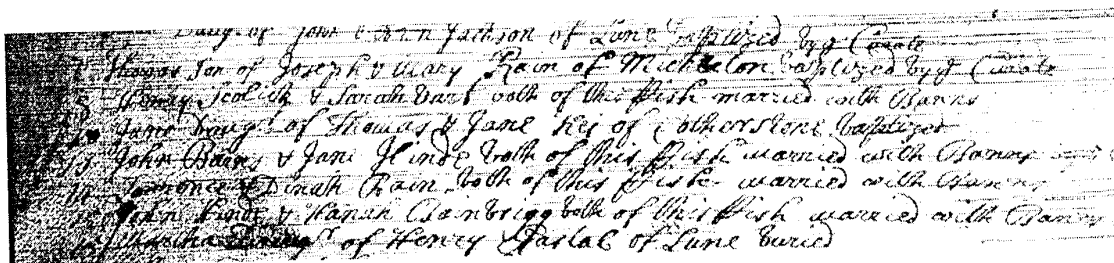 Daug of John & Ann Jackson of Lune baptized by ye Curate
Thomas Son of Joseph & Mary Rain of Mickleton baptized by ye Curate
Henry & Sarah both of this Pish married with Banns
Jane Daugr of Thomas & Jane of Cotherstone baptized
John Bains & Jane Hinde both of this Pish married with Banns
& Dinah Rain both of this Pish married with Banns
John Hinde & Hanah Bainbrigg both of this Pish married with Banns
Martha Daugr of Henry of Lune buried